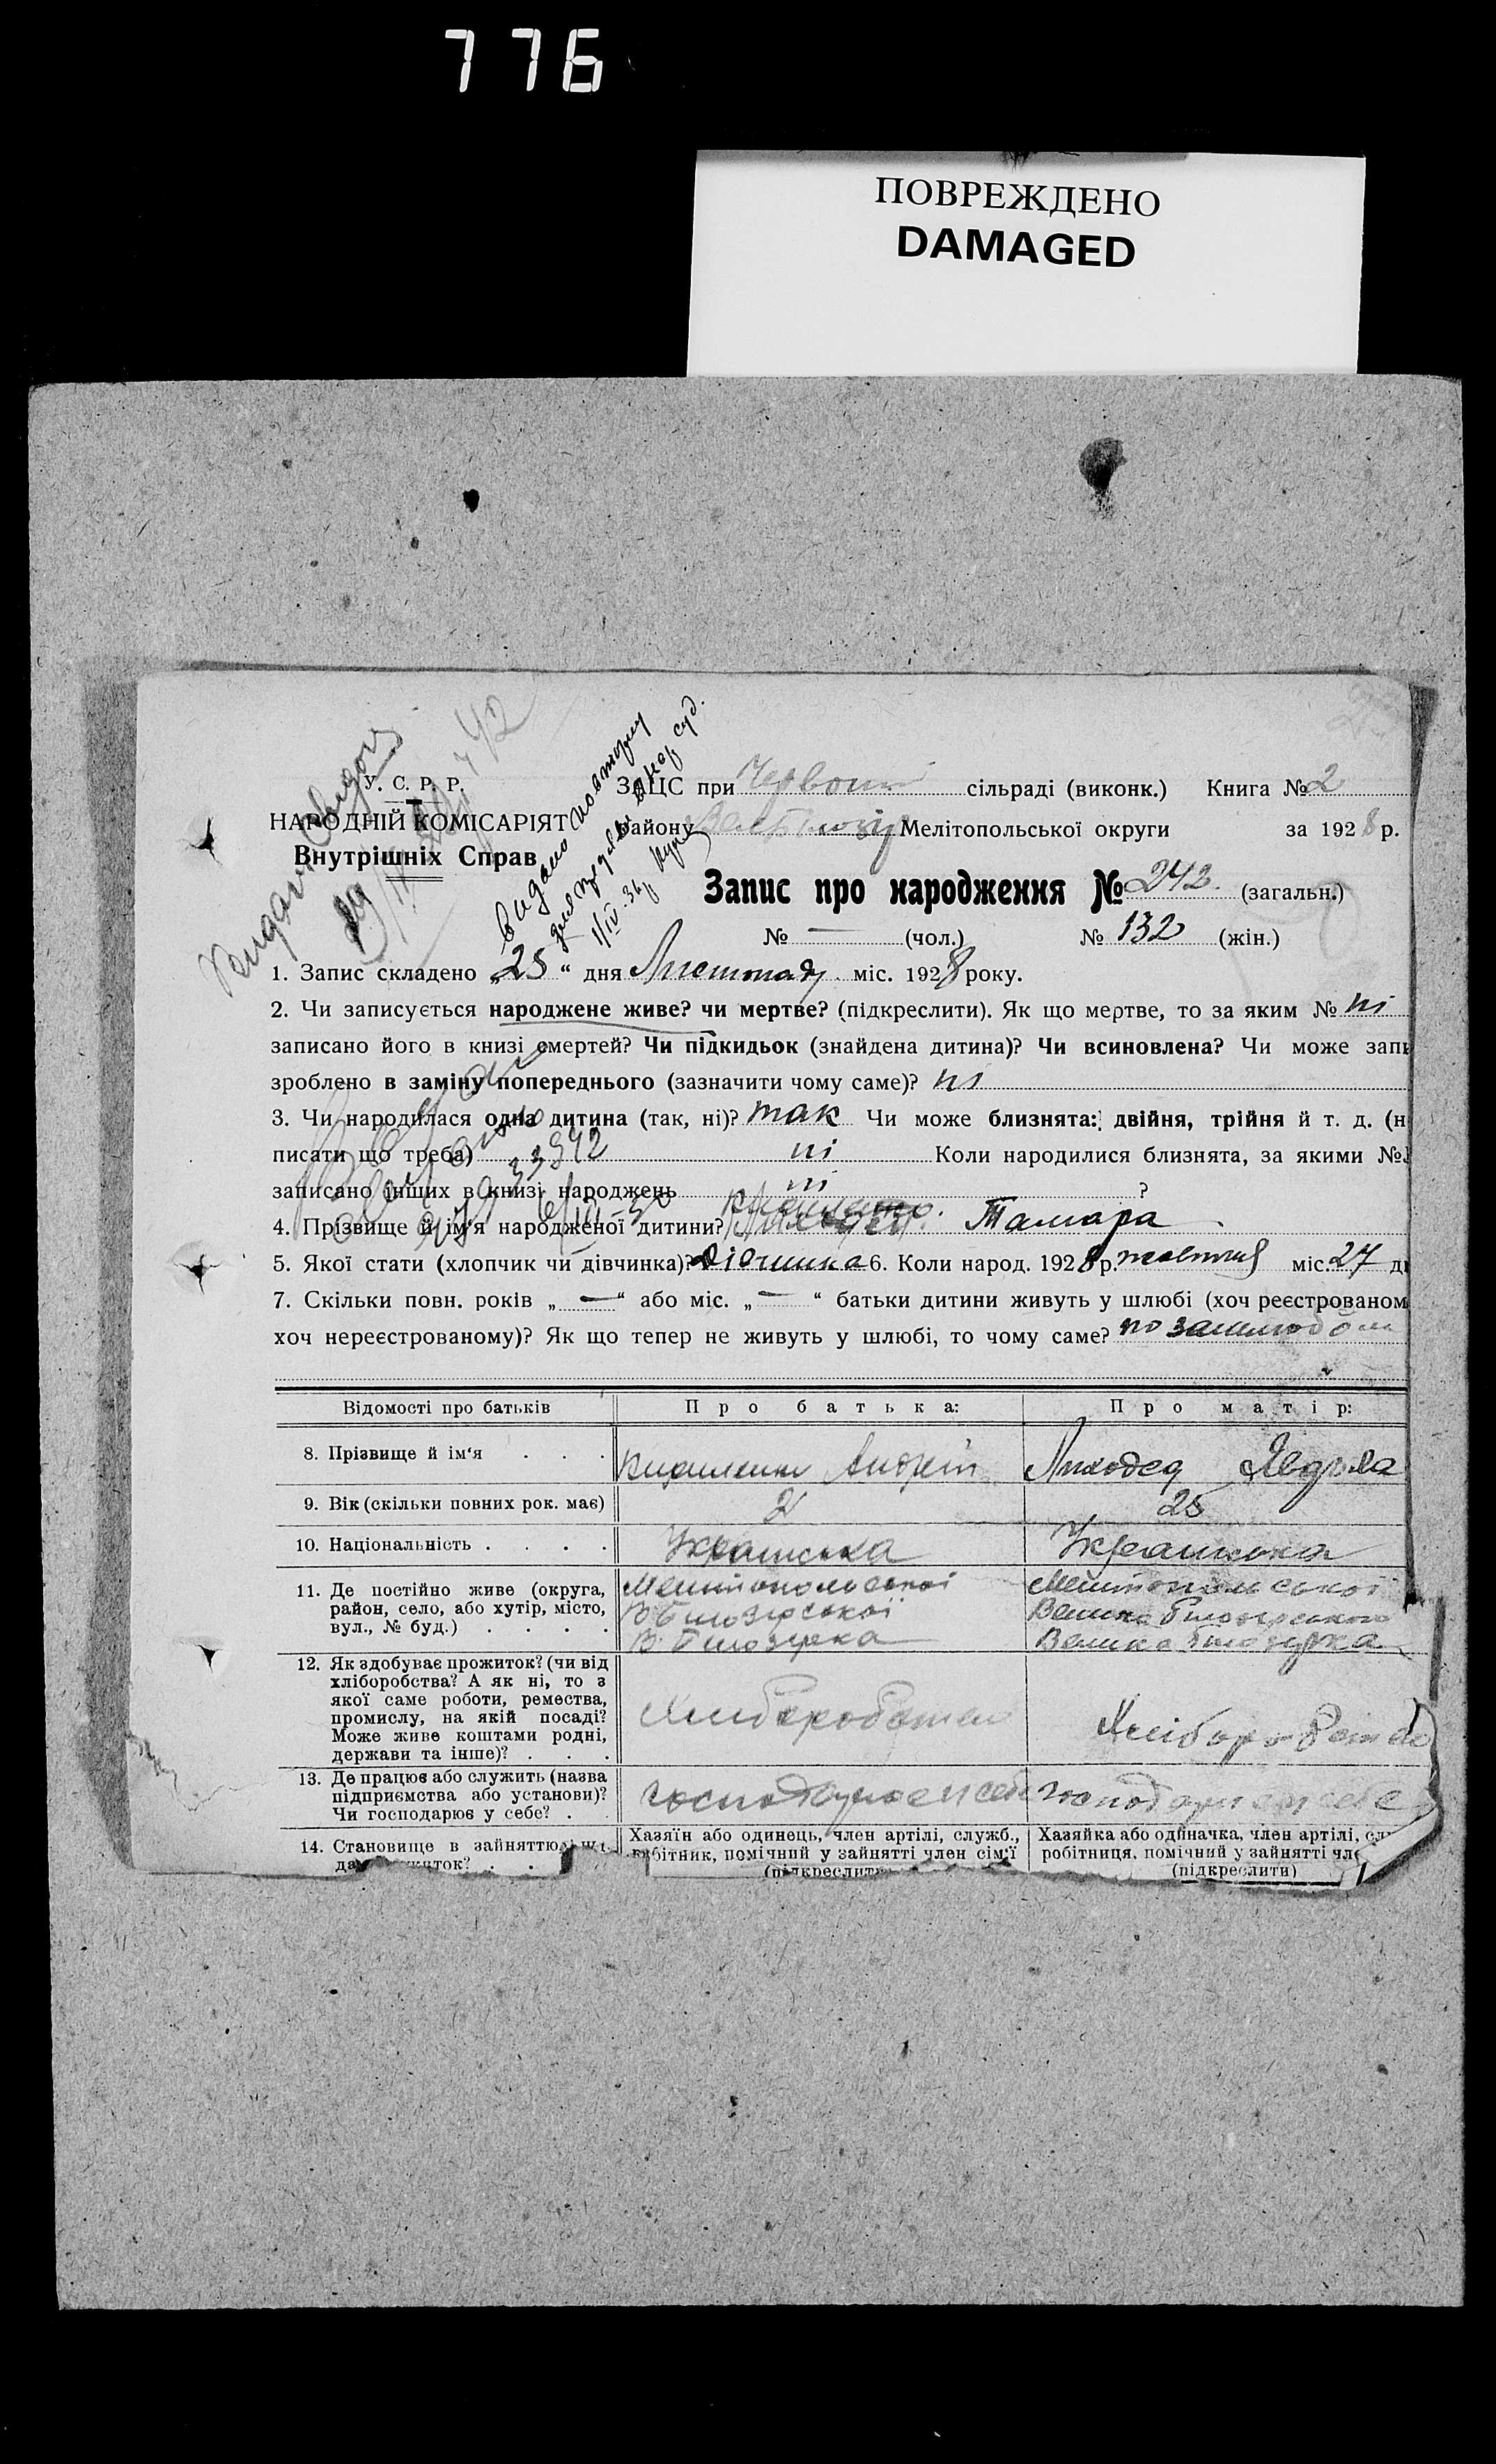 776
ПОВРЕЖДЕНО
DAMAGED
У. С. Р. Р.
НАРОДНІЙ КОМІСАРІЯТ
Внутрішніх Справ
ЗАЦС при сільраді (виконк.) Книга № 2
Району Мелітопольської округи за 1928 р.
Запис про народження № 242. (загальн.)
№ — (чол.) № 132 (жін.)
1. Запис складено „25“ дня Листопаду міс. 1928 року.
2. Чи записується народжене живе? чи мертве? (підкреслити). Як що мертве, то за яким № ні
записано його в книзі смертей? Чи підкидьок (знайдена дитина)? Чи всиновлена? Чи може запи
зроблено в заміну попереднього (зазначити чому саме)? ні
3. Чи народилася одна дитина (так, ні)? так Чи може близнята: двійня, трійня й т. д. (н
писати що треба) ні Коли народилися близнята, за якими №
записано інших в книзі народжень ні ?
4. Прізвище й ім'я народженої дитини? Тамара
5. Якої стати (хлопчик чи дівчинка)? Дівчинка 6. Коли народ. 1928 р. жовтня міс. 27 д
7. Скільки повн. років „ — “ або міс. „ — “ батьки дитини живуть у шлюбі (хоч реєстрованом
хоч нереєстрованому)? Як що тепер не живуть у шлюбі, то чому саме?
Відомості про батьків Про батька: Про матір:
8. Прізвище й ім'я . . . Андрій Лиходед Явдоха
9. Вік (скільки повних рок. має) 25
10. Національність . . . . Українська Українська
11. Де постійно живе (округа, Мелітопольської Мелітопольської
район, село, або хутір, місто, В Білозірської Велико Білозірського
вул., № буд.) . . . . В. Білозірка Велика Білозірка
12. Як здобуває прожиток? (чи від
хліборобства? А як ні, то з
якої саме роботи, ремества,
промислу, на якій посаді? Хліборобством Хліборобством
Може живе коштами родні,
держави та інше)? . . .
13. Де працює або служить (назва
підприємства або установи)? господарює у себе господарює у себе
Чи господарює у себе? . .
14. Становище в зайнятт Хазяїн або одинець, член артілі, служб., Хазяйка або одиначка, член артілі, сл
робітник, помічний у зайнятті член сім'ї робітниця, помічний у зайнятті чл
(підкреслити) (підкреслити)